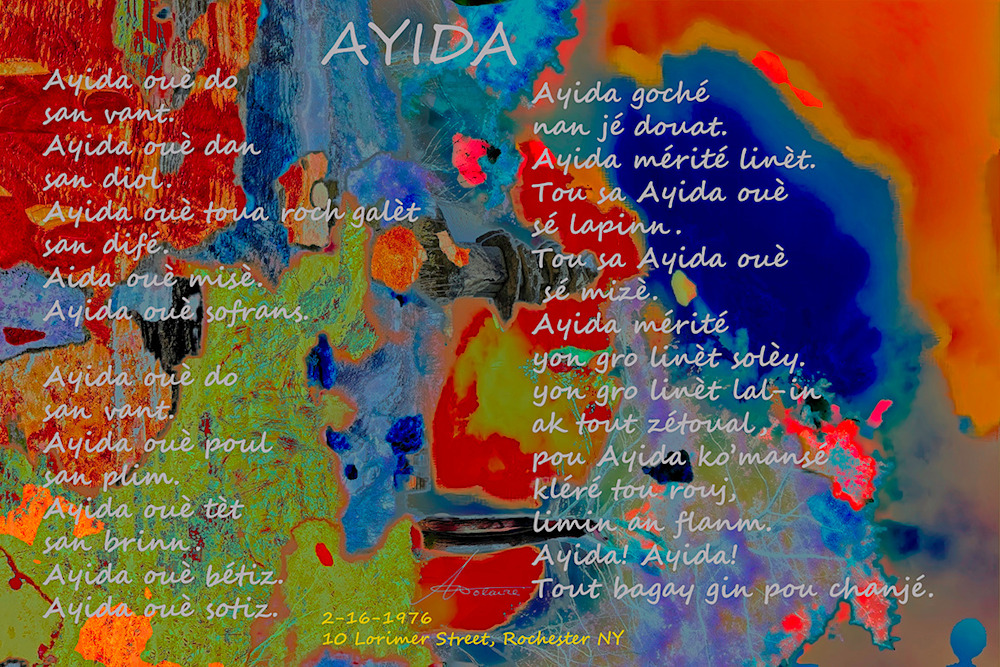 AYIDA
Ayida ouè do
san vant.
Ayida ouè dan
san diol.
Ayida ouè toua roch galèt
san difé.
Aida ouè misè.
Ayida ouè sofrans.
Ayida ouè do
san vant.
Ayida ouè poul
san plim.
Ayida ouè tèt
san brinn.
Ayida ouè bétiz.
Ayida ouè sotiz.
Ayida goché
nan jé douat.
Ayida mérité linèt.
Tou sa Ayida ouè
sé lapinn.
Tou sa Ayida ouè
sé mizè.
Ayida mérité
yon gro linèt solèy.
yon gro linèt lal-in
ak tout zétoual,
pou Ayida ko'mansé
kléré tou rouj,
limin an flanm.
Ayida! Ayida!
Tout bagay gin pou chanjé.
2-16-1976
10 Lorimer Street, Rochester NY